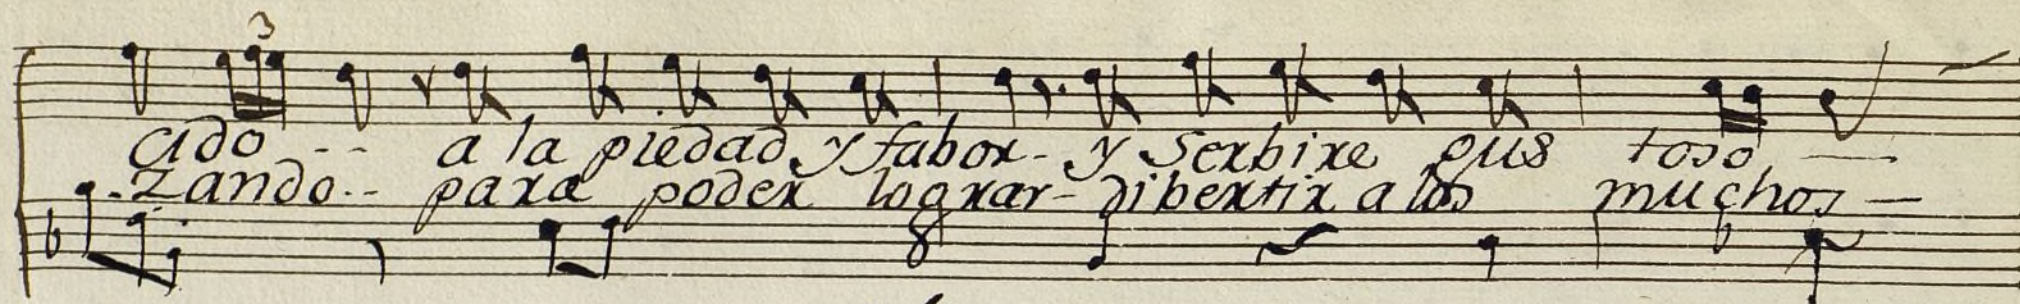 3
cido -- a la piedad y fabor- y Serbire gus toso —
-zando-- para poder lograr- dibertir a los muchos —